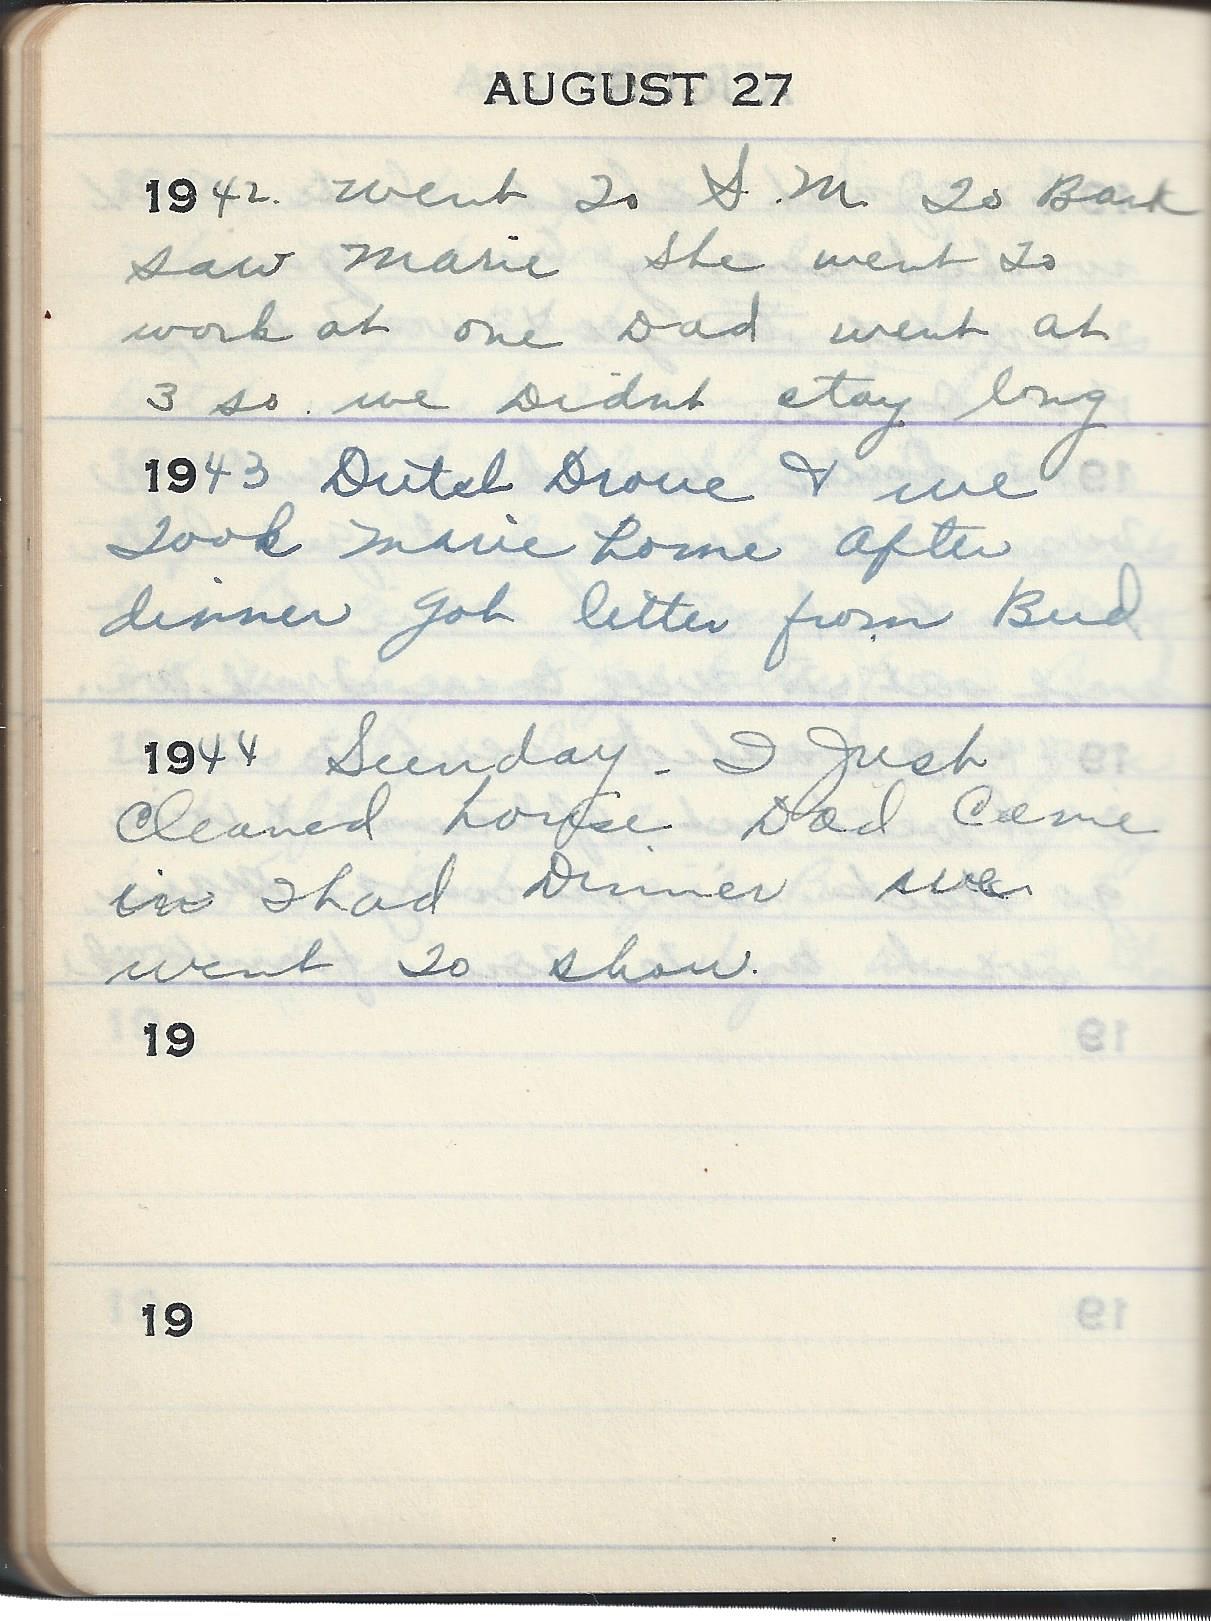 AUGUST 27
1942. went To S.M. To Bank
saw Marie she went To
work at one Dad went at
3 so. we Didnt stay long
1943 Dutch Drove & we
Took Marie home after
dinner got letter from Bud
1944 Sunday - I Just
Cleaned house Dad Came
in I had Dinner we
went To show.
19
19